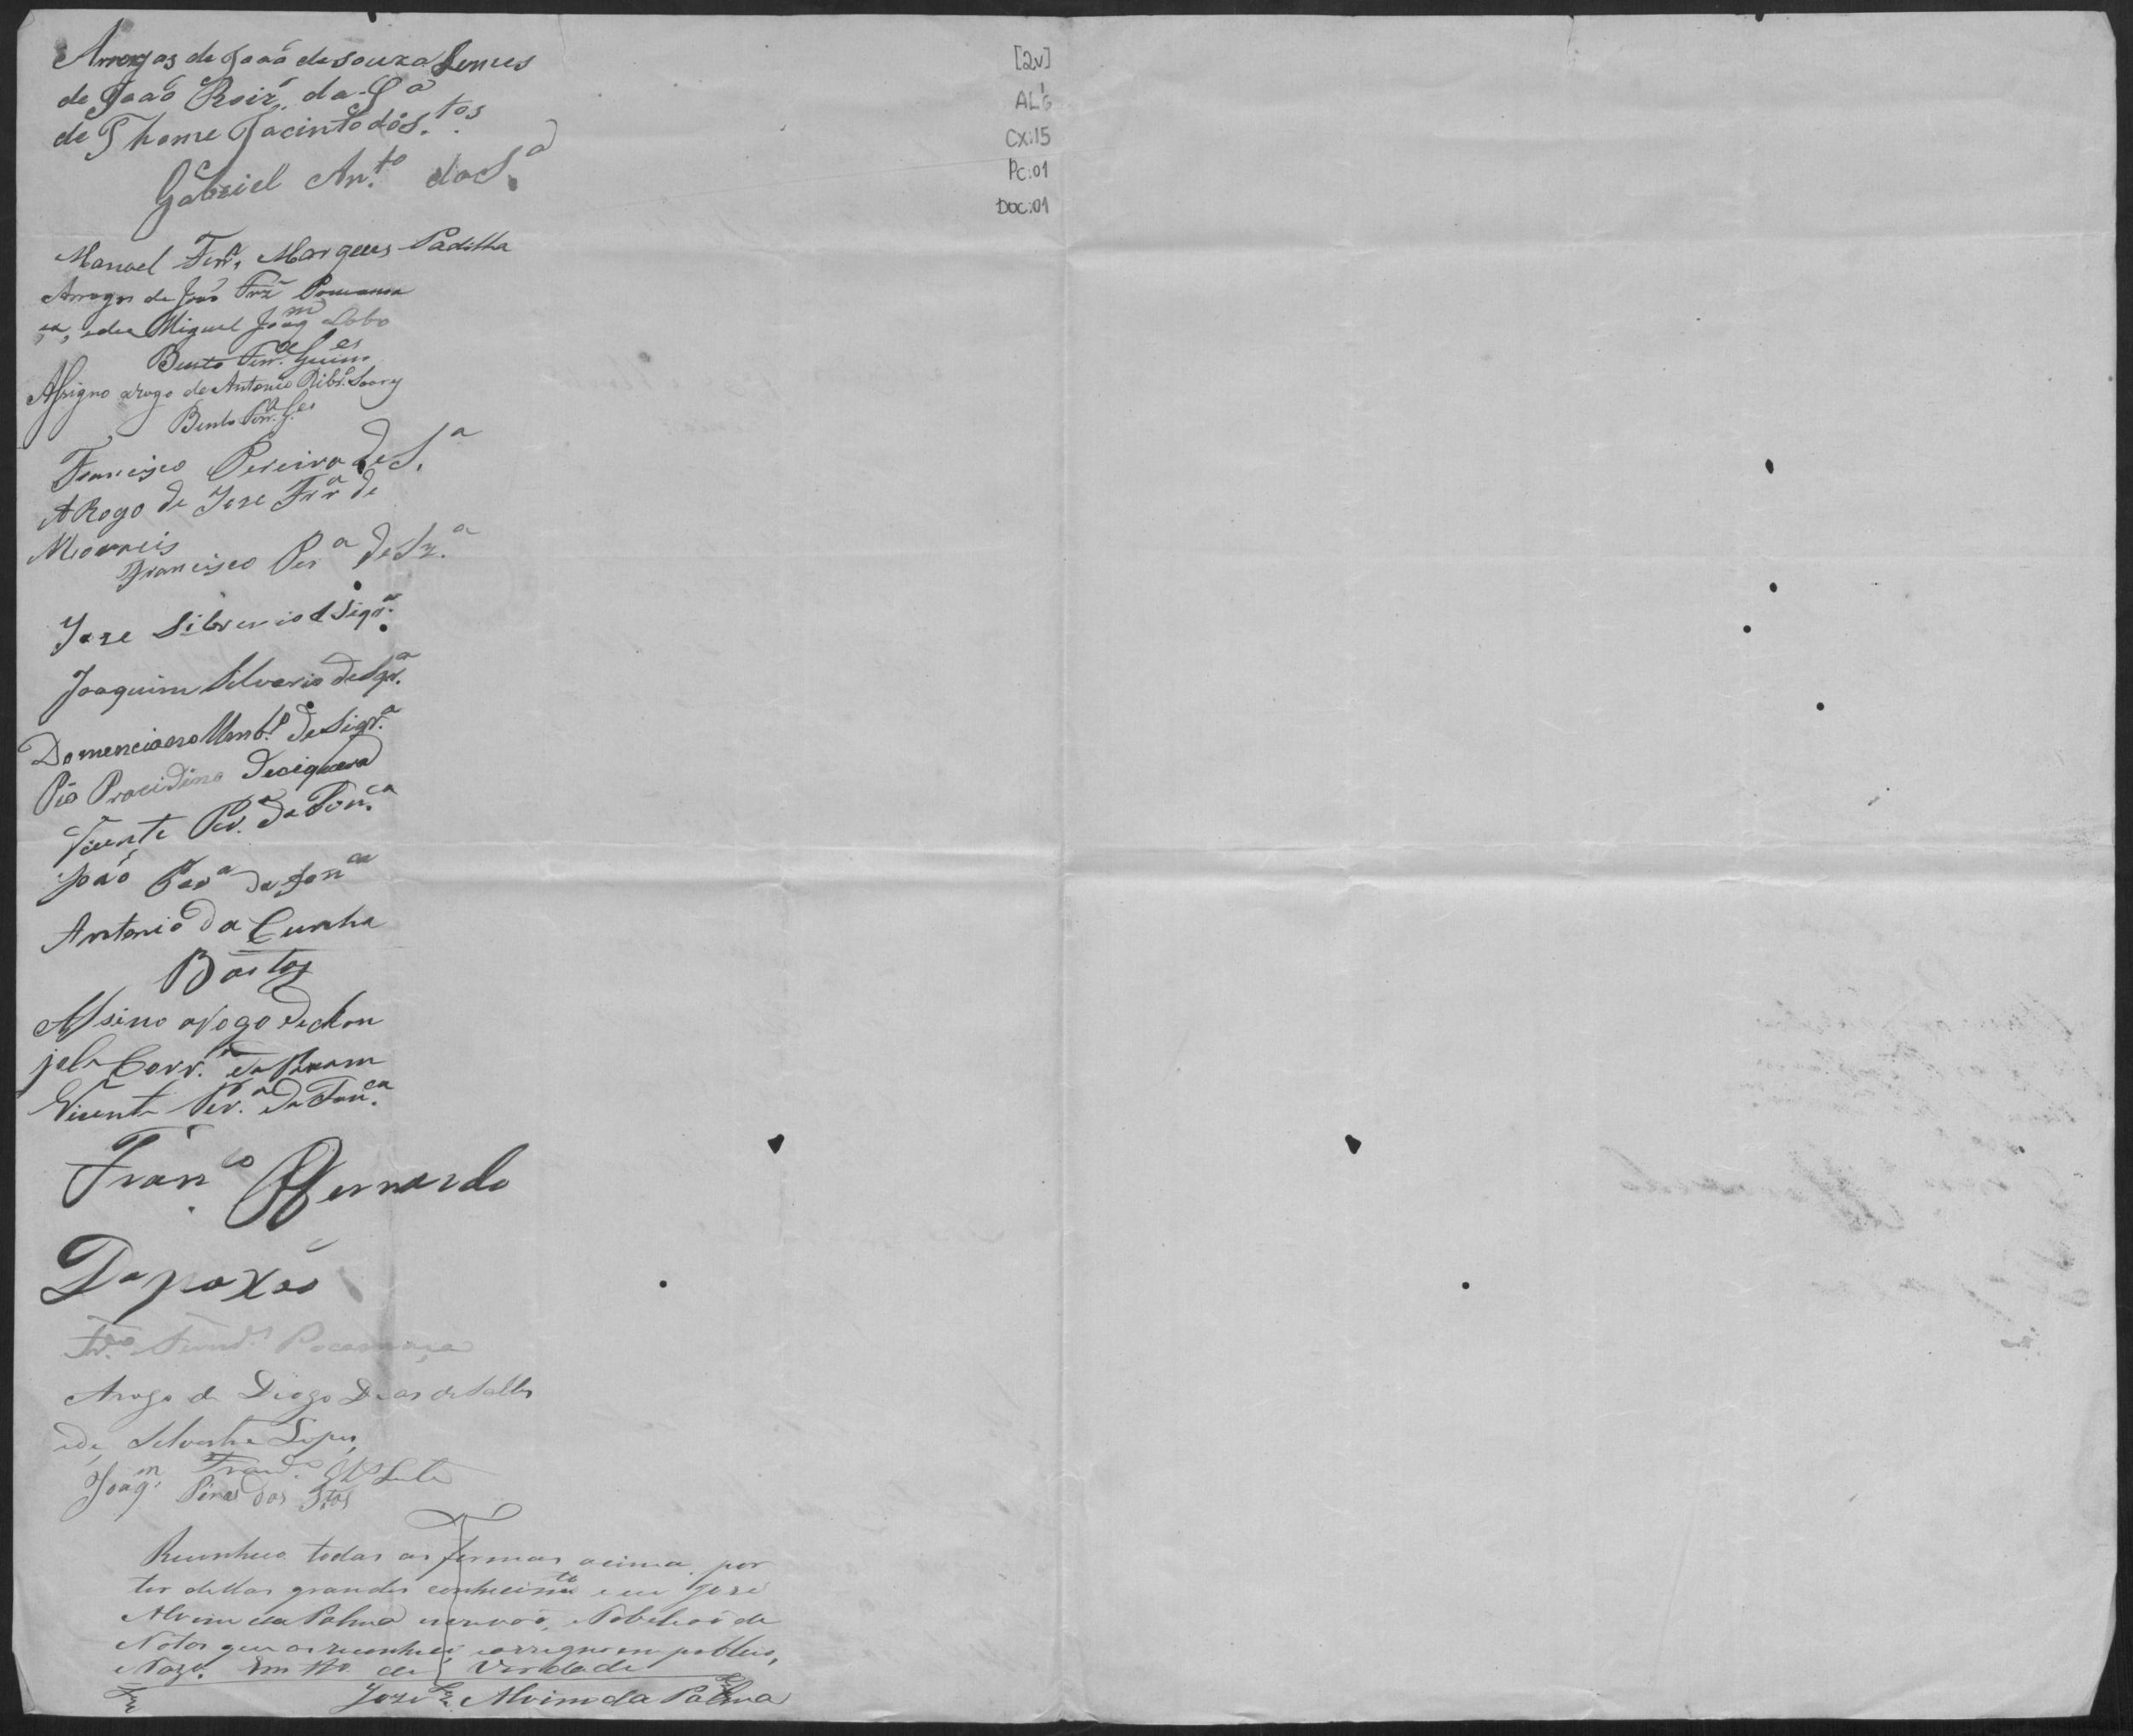 Arrogas de Joaõ de Souza Lemes
de Joaõ Roiz. da S.ª
de Thome Jacinto dos S.tos
Gabriel An.to da S.ª
[2v]
AL'G
CX:15
PC:01
DOC:01
Manoel Ferr.ª Marques Padilha
Arrogo de Joaõ Frz
, e de Miguel Joaq.m Lobo
Bento Ferr.ª Guim.es
Assigno arogo de Antonio Ribr.º
Bento Ferr.ª G.es
Francisco Pereira de S.ª
A Rogo de Jose Frr.ª de
Moraeis
Francisco Per.ª de Sz.ª
Joze Silverio d Siqr.ª
Joaquim Silverio de Sqr.ª
Domenciano de Siqr.ª
Pio Procidino deciqueira
Vicente Per.ª da Fon.ca
João Per.ª da Fon.ca
Antonio da Cunha
Bastos
Assino arogo de An
jelo Corr.ª da
Vicente Per.ª da Fon.ca
Fran.co Bernardo
Da paxaõ
Arogo de Diogo Dias de Salles
e de Silvestre Lopes
Fran.co Leite
Joaq.m Pires dos S.tos
Reconheco todas as fermas acima por
ter dellas grandes conhecim.to e eu Joze
Alvim da Palma escrivaõ, e Tabeliaõ de
Notas que as reconheci, e assigno em publico,
e Razo. Em tt.º de Verdade
Joze Alvim da Palma